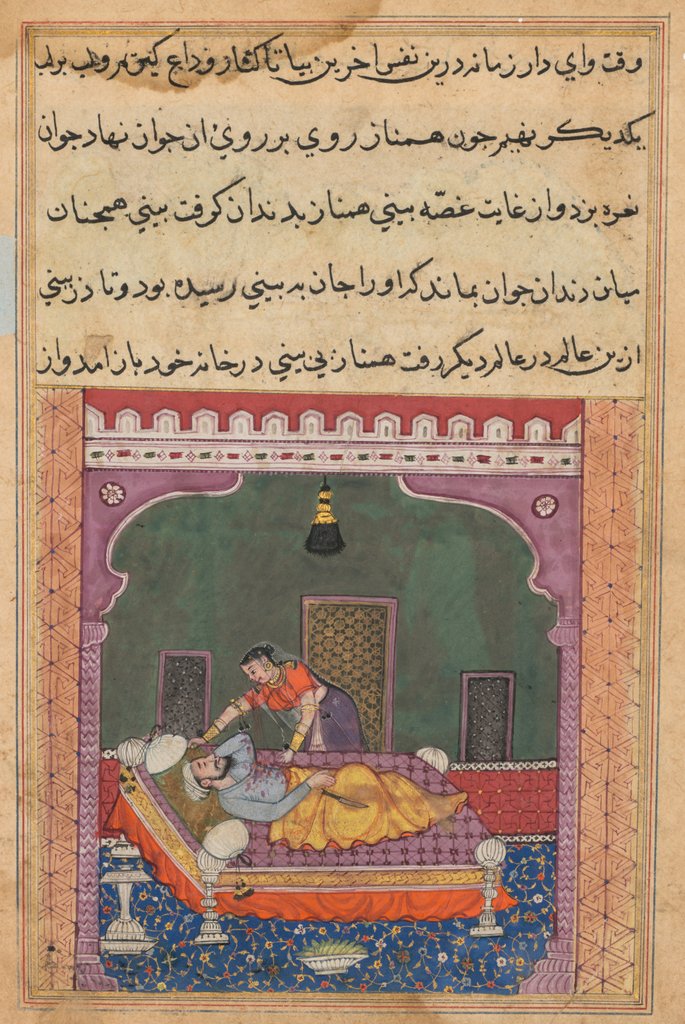 وقت وای دار زمانه درین نفس اخرین بیا تا کنار و وداع کنیم و لب بر لب
یکدیکر نهیم جون همناز روی بر روئ ان جوان نهاد جوان
نعره بزد و از غایت غصّه بینی همناز بدندان کرفت بینی همجنان
میان دندان جوان بماند کراو را جان به بینی رسیده بود و تا در بینی
ازین عالم در عالم دیکر رفت همناز بی بینی در خانه خود باز امد و از